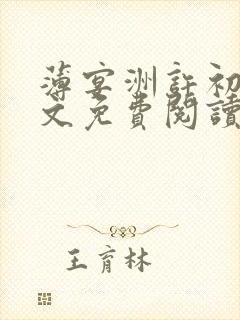 薄宴洲許初
文免費閱讀
王育林